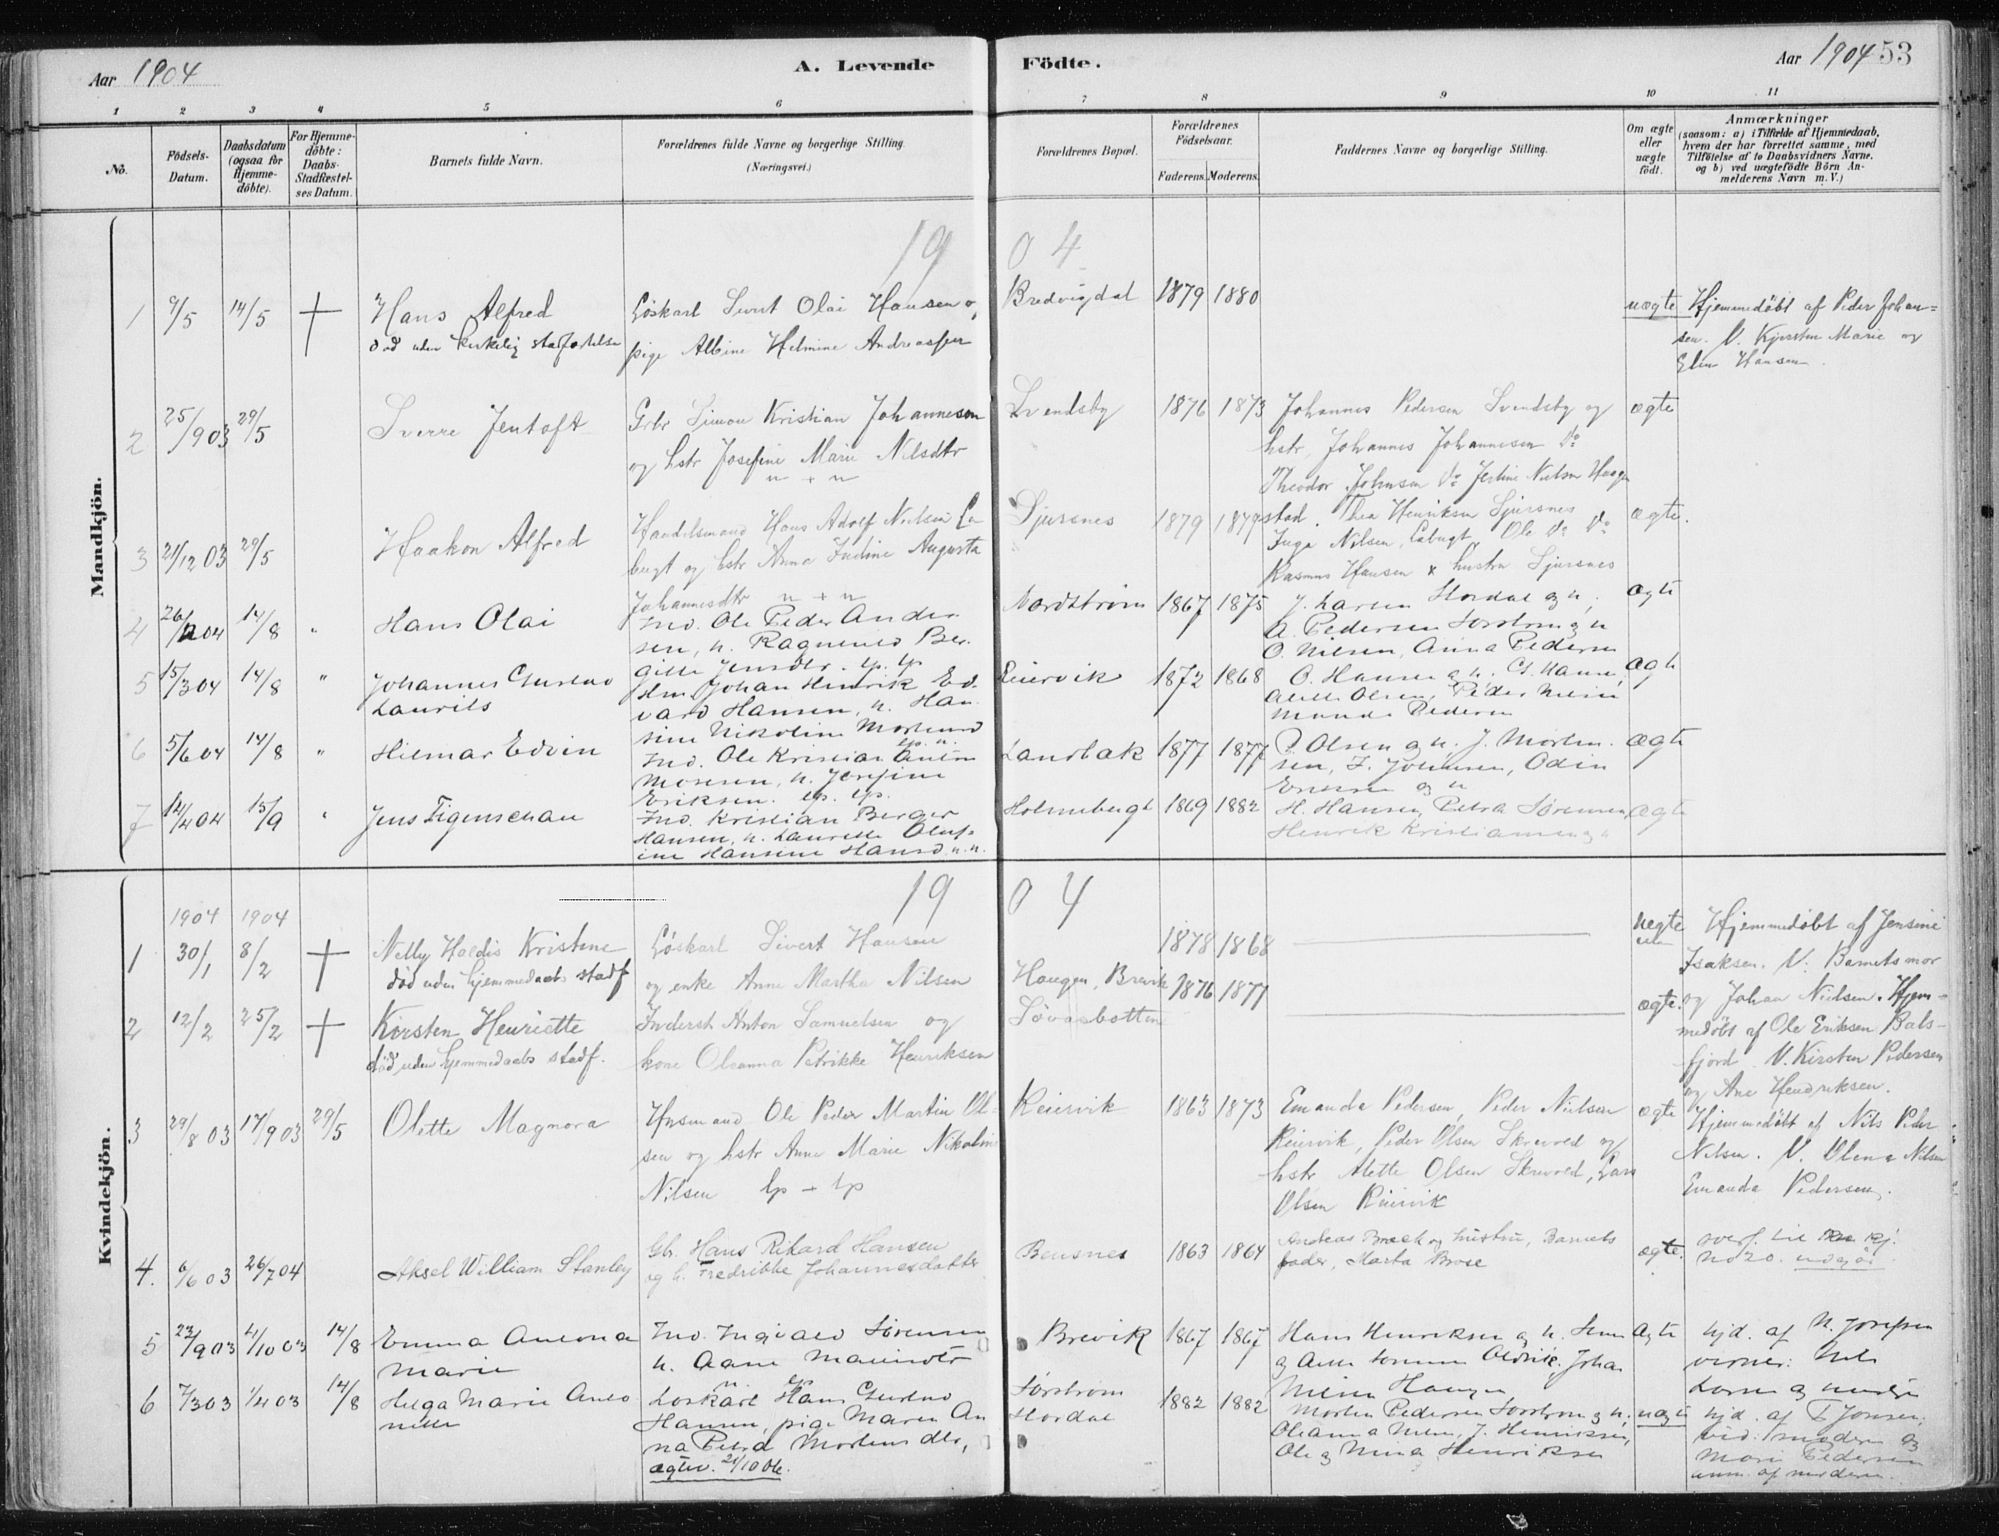 Aar 1904
A. Levende Födte.
Aar 1904 53
1 2 3 4 5 6 7 8 9 10 11
No.
Födsels-
Datum.
Daabsdatum
(ogsaa for
Hjemme-
döbte).
For Hjemme-
döbte:
Daabs-
Stadfæstel-
ses Datum.
Barnets fulde Navn.
Forældrenes fulde Navne og borgerlige Stilling.
(Næringsvei.)
Forældrenes Bopæl.
Forældrenes
Födselsaar.
Faderens. Moderens.
Faddernes Navne og borgerlige Stilling.
Om ægte
eller
uægte
födt.
Anmærkninger
(saasom: a) i Tilfælde af Hjemmedaab,
hvem der har forrettet samme, med
Tilföielse af to Daabsvidners Navne,
og b) ved uægtefödte Börn An-
melderens Navn m. V.)
Mandkjön.
1904
1 9/5 14/5
Hans Alfred
död uden kirkelig stadfæstelse
Löskarl Sivert Olai Hansen og
pige Albine Helmine Andreassen
Bredvigdal 1879 1880
uægte
Hjemmedöbt af Peder Johan-
sen. V. Kjersten Marie og
Elen Hansen.
2 25/9 03 29/5
Sverre Jentoft
Grbr Simon Kristian Johannesen
og hstr Josefine Marie Nilsdtr
Svendsby 1876 1873
Johannes Pedersen Svendsby og
hstr, Johannes Johannesen Do
Theodor Johnsen Do Jertine Nielsen Haage
stad. Thea Henriksen Sjursnes
ægte
3 21/12 03 29/5
Haakon Alfred
Handelsmand Hans Adolf Nielsen La-
bugt og hstr Anna Indine Augusta
Johannesdtr
Sjursnes 1879 1879
Inga Nilsen, Labugt, Ole Do Do
Rasmus Hansen & hustru Sjursnes
ægte.
4 26/2 04 14/8
Hans Olai
Ind. Ole Peder Ander
sen, h. Ragnhild Ber
gitte Jensdtr.
Nordström 1867 1875
J. Larsen Hordal og h,
A. Pedersen Sorström og h
O. Nilsen, Anna Pedersen
ægte
5 15/3 04 14/8
Johannes Gustav
Laurits
Hm Johan Henrik Ed
vard Hansen, h. Han
sine Nikoline Mortensd
Reiervik 1872 1868
O. Hansen og h.
Olsen, Peder Nilsen
Pedersen
ægte
6 5/6 04 14/8
Hilmar Edvin
Ind. Ole Kristian Anton
Monsen, h. Josefine
Eriksen.
Landbak 1877 1877
P. Olsen og h. J. Morten
sen, F. Johnsen, Odin
Eriksen og h
ægte
7 14/4 04 15/9
Jens Figenschau
Ind. Kristian Berger
Hansen, h. Laurette Oluf
ine Hansine Hansd
Holmebugt 1869 1882
H. Hansen, Petra Sörensen
Henrik Kristiansen og h
ægte
Kvindekjön.
1904
1904 1904
1 30/1 8/2
Nelly Hordis Kristine
död uden hjemmedaabs stadf
Löskarl Sivert Hansen
og enke Anne Martha Nilsen
Haugen, Brevik 1878 1868
uægte
Hjemmedöbt af Jensine
Isaksen. V. Barnets mor
og Johan Nielsen.
2 12/2 25/2
Kirsten Henriette
död uden hjemmedaabs stadf.
Inderst Anton Samuelsen og
kone Oleanna Petrikke Henriksen
Sövasbotten 1876 1877
ægte.
Hjem-
medöbt af Ole Eriksen Bals-
fjord. V. Kirsten Pedersen
og Ane Hendriksen.
3 29/8 03 17/9 03 29/5
Olette Magnora
Husmand Ole Peder Martin Ol-
sen og hstr Anne Marie Nikoline
Nilsen
Reiervik 1863 1873
Emanda Pedersen, Peder Nielsen
Reiervik, Peder Olsen Skrevol og
hstr Alette Olsen Skrevold, Lars
Olsen Reiervik
ægte
Hjemmedöbt af Nils Peder
Nilsen. V. Olena Nilsen
Emanda Pedersen.
4. 6/6 03 26/7 04
Aksel William Stanley
Gb. Hans Rikard Hansen
og h. Fredrikke Johannesdatter
Bensnes 1863 1864
Andreas Brock og hustru, Barnets
fader, Marta Brose
ægte.
overf. til
No 20. udgår
5 23/9 03 4/10 03 14/8
Emma Antona
Marie
Ind. Ingvald Sörensen
h. Aane Mariusdtr
Brevik 1867 1867
Hans Henriksen og h.
Johan
Nilsen Haugen
ægte
hjd. af N. Josefsen
vidner: Nils
Larsen og
6 7/3 03 1/4 03 14/8
Helga Marie Anto
nette
Löskarl Hans Gustav
Hansen, pige Maren An
na Petra Mortensdtr,
ægtev. 21/10 06.
Sörström
Hordal 1882 1882
Morten Pedersen Sorström og h,
Oleanna Nilsen, J. Henriksen,
Ole og Nina Henriksen
uægte
hjd. af T Jonsen,
vid. moderen og
Marie Pedersen
anm. af moderen.